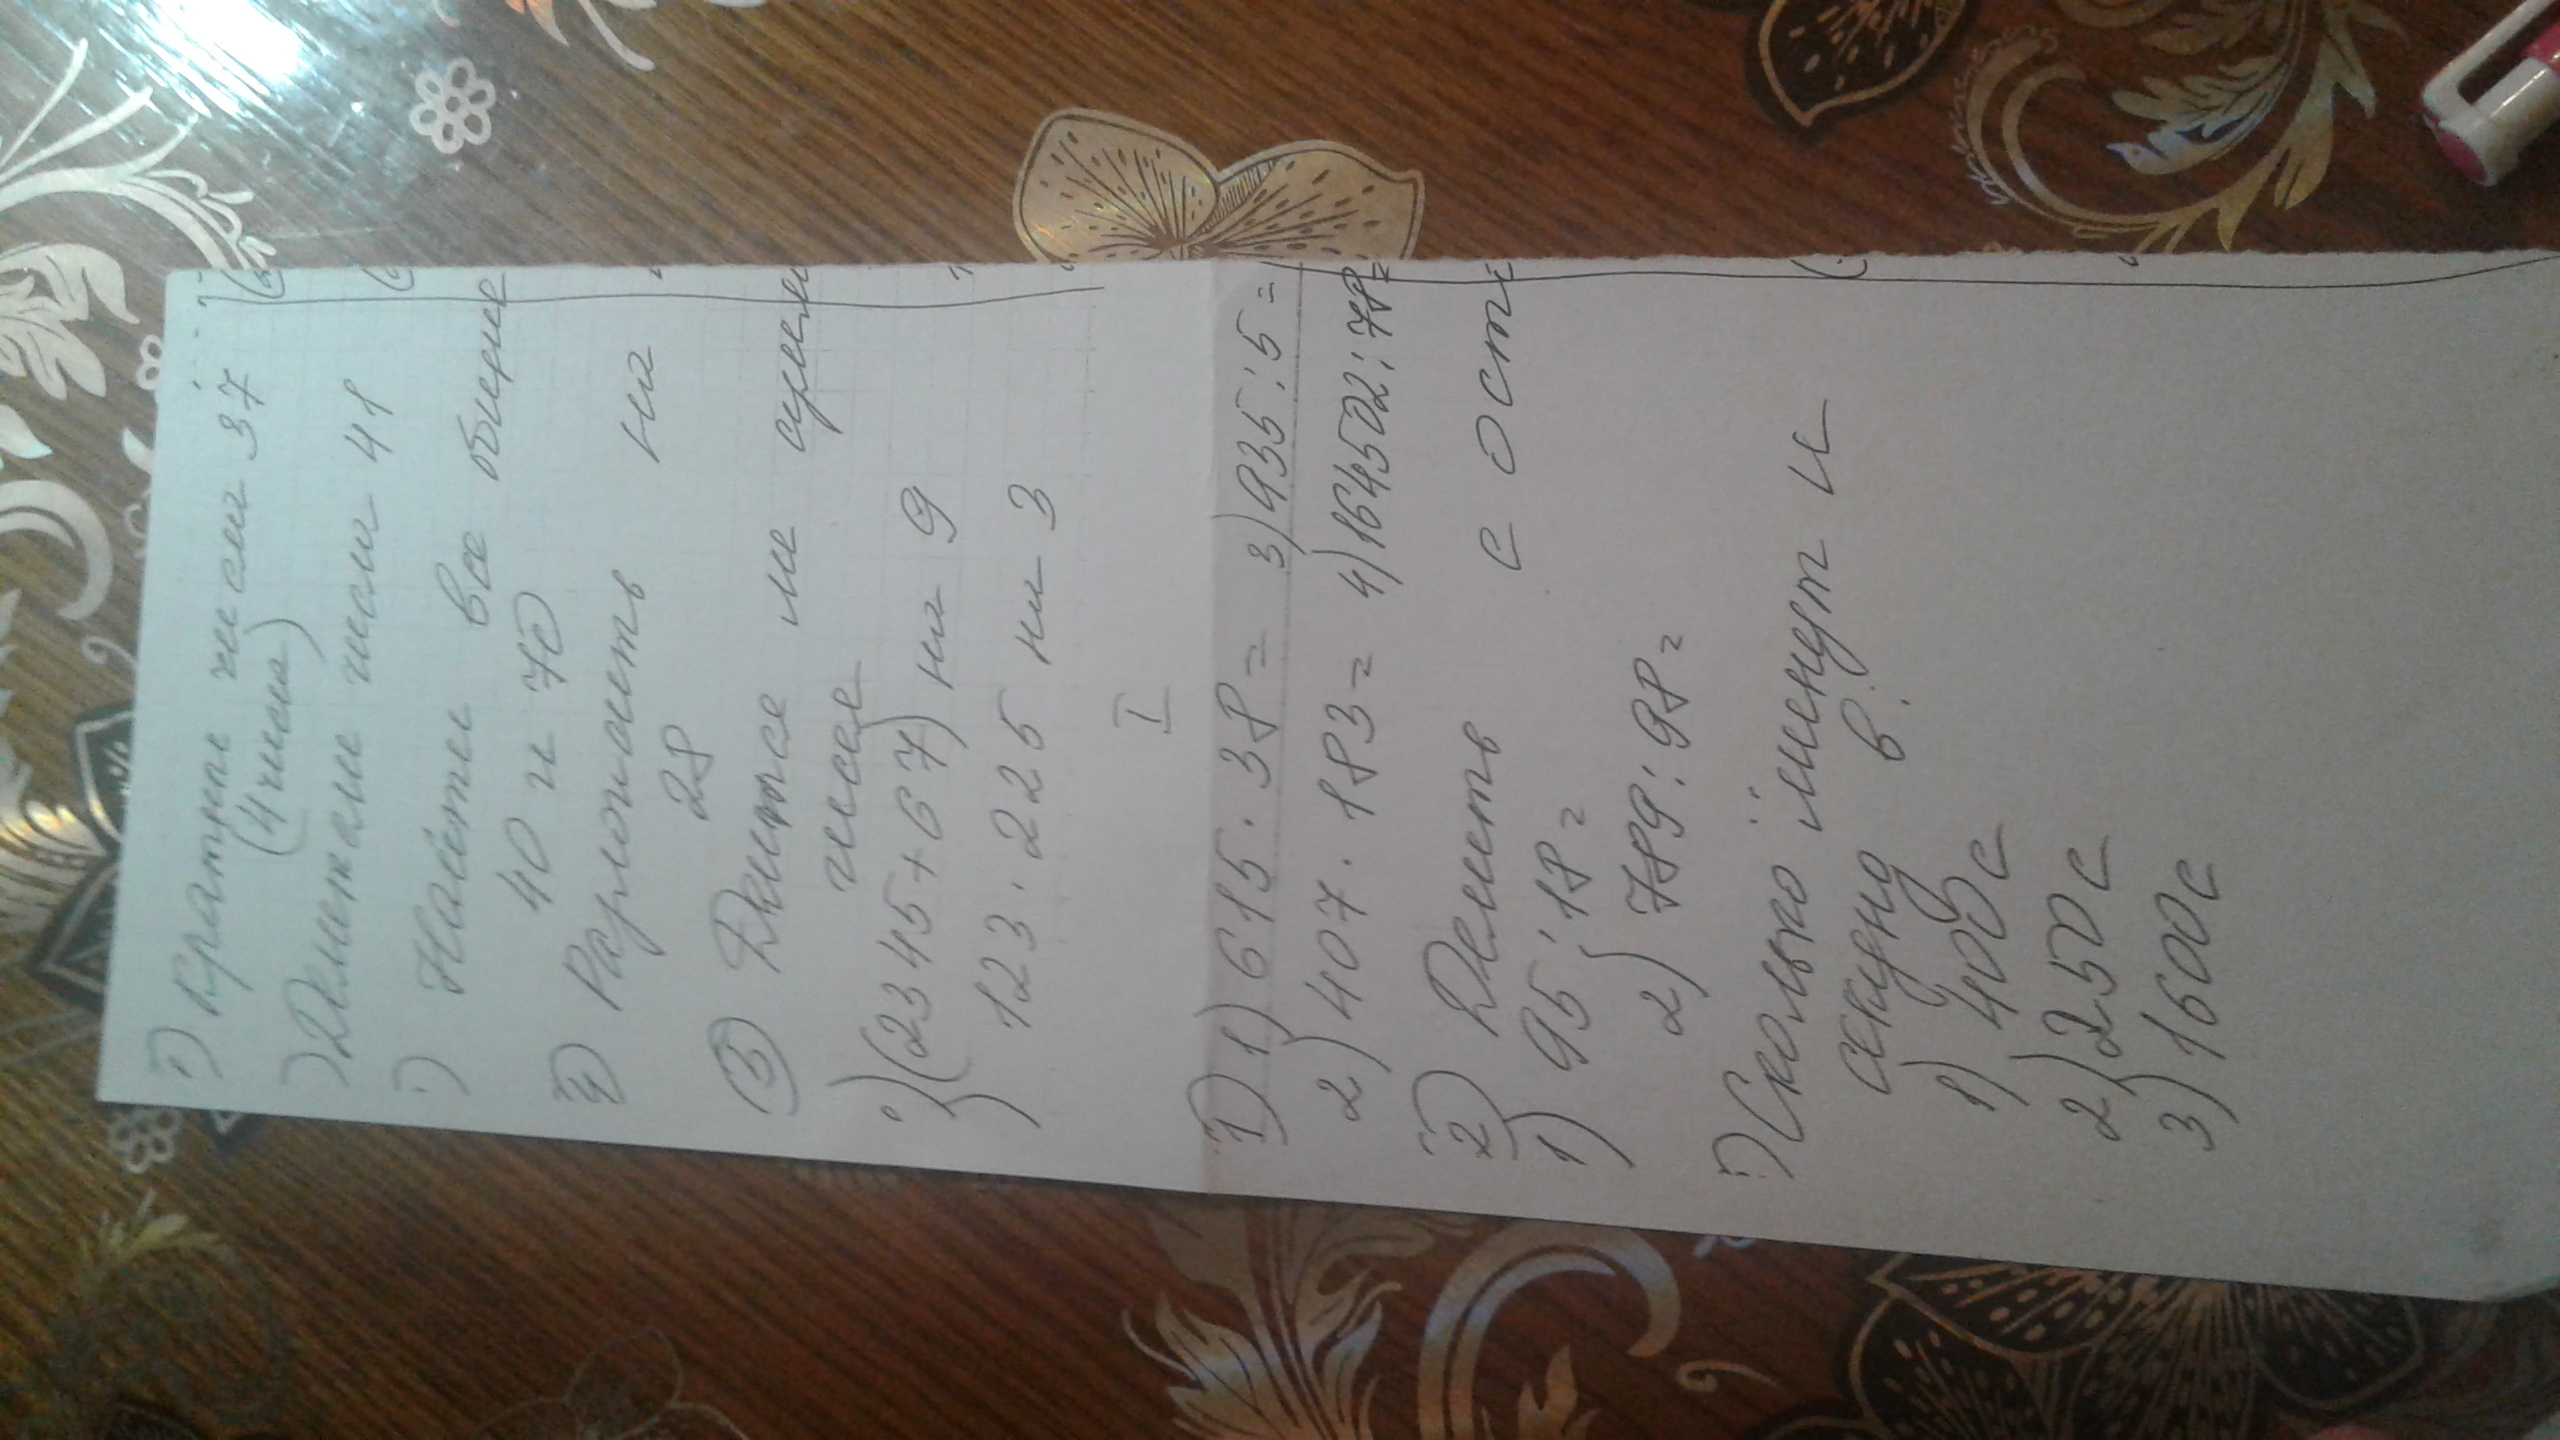 1) Кратные числа 37
(4 числа)
) Делители числа 41
) Найти все общие
40 и 70
4) Разложить на
28
5) Делится ли сумм
числа
) (2345+67) на 9
) 123 · 225 на 3
I
1) 1) 615 · 38 = 3) 935 : 5 =
2) 407 · 183 = 4) 164502 : 78 =
2) Делить с ост
1) 95 : 18 =
2) 789 : 98 =
) Сколько минут и
секунд в:
1) 400 с
2) 250 с
3) 1600 с